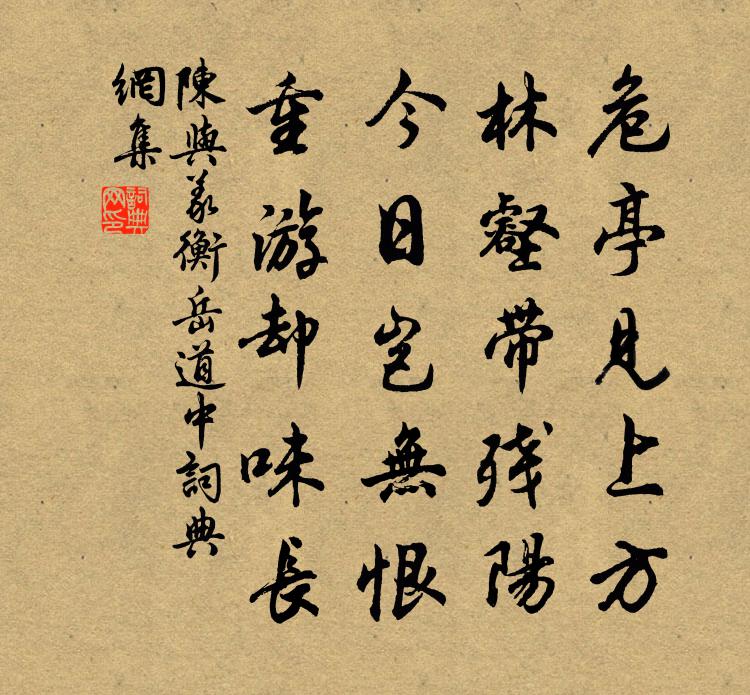 危亭見上方
林壑帶殘陽
今日豈無恨
重游却味長
陳與義衡岳道中詞典
網集
詞典網印